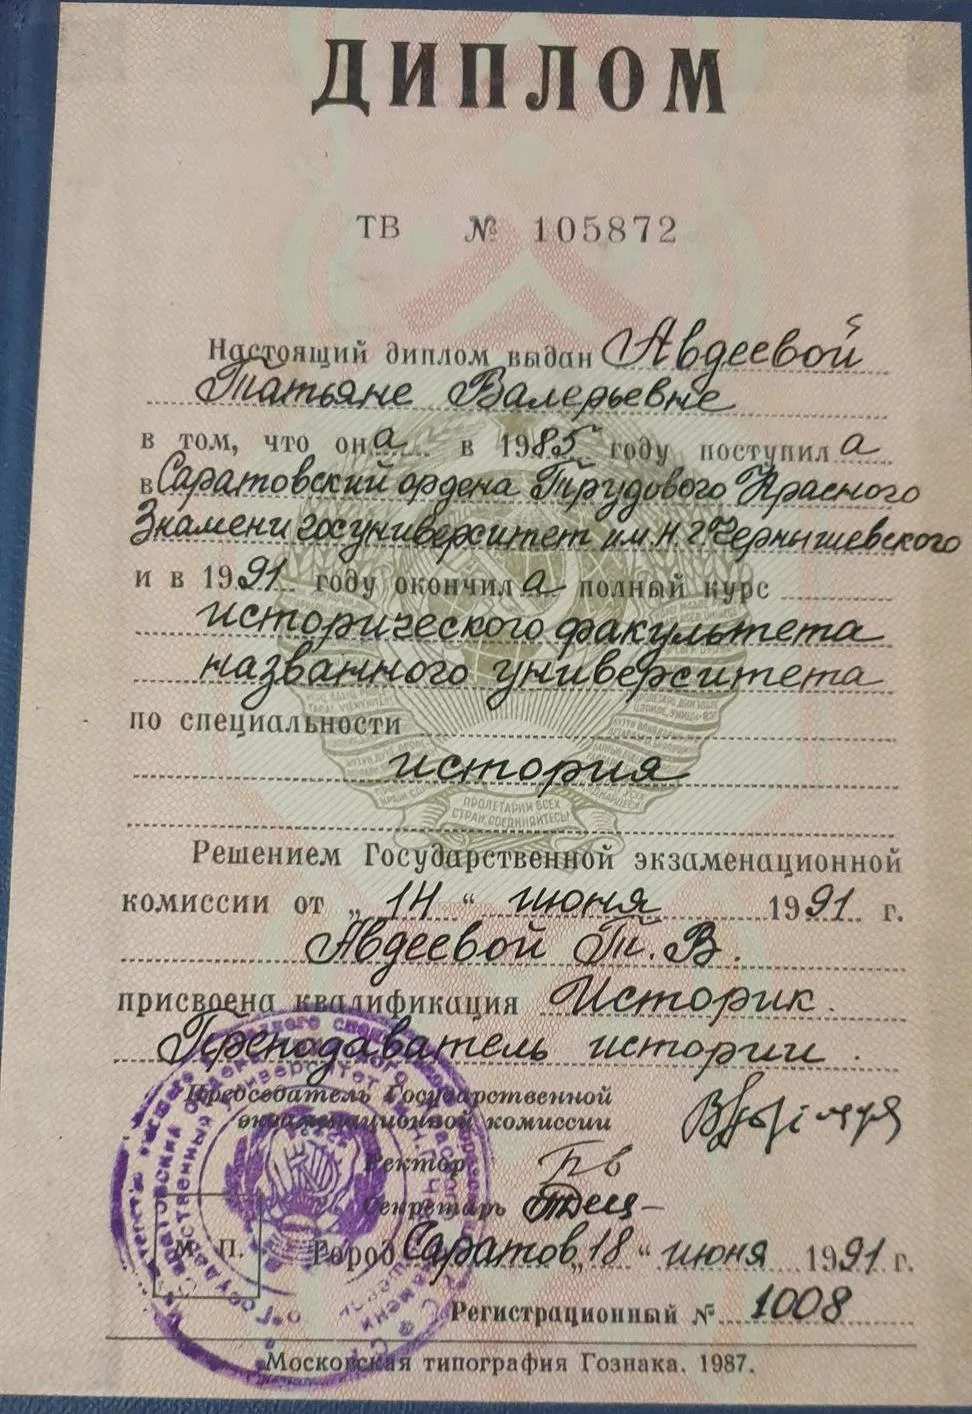 ДИПЛОМ
ТВ № 105872
Настоящий диплом выдан Авдеевой
Татьяне Валерьевне
в том, что она в 1985 году поступила
в Саратовский ордена Трудового Красного
Знамени госуниверситет им. Н Г Чернышевского
и в 1991 году окончила полный курс
исторического факультета
названного университета
по специальности
история
ПРОЛЕТАРИИ ВСЕХ
СТРАН, СОЕДИНЯЙТЕСЬ!
Решением Государственной экзаменационной
комиссии от „14“ июня 1991 г.
Авдеевой Т. В.
присвоена квалификация Историк.
Преподаватель истории.
Председатель Государственной
экзаменационной комиссии
Ректор
Секретарь
М. П. Город Саратов „18“ июня 1991 г.
Регистрационный № 1008
Московская типография Гознака. 1987.